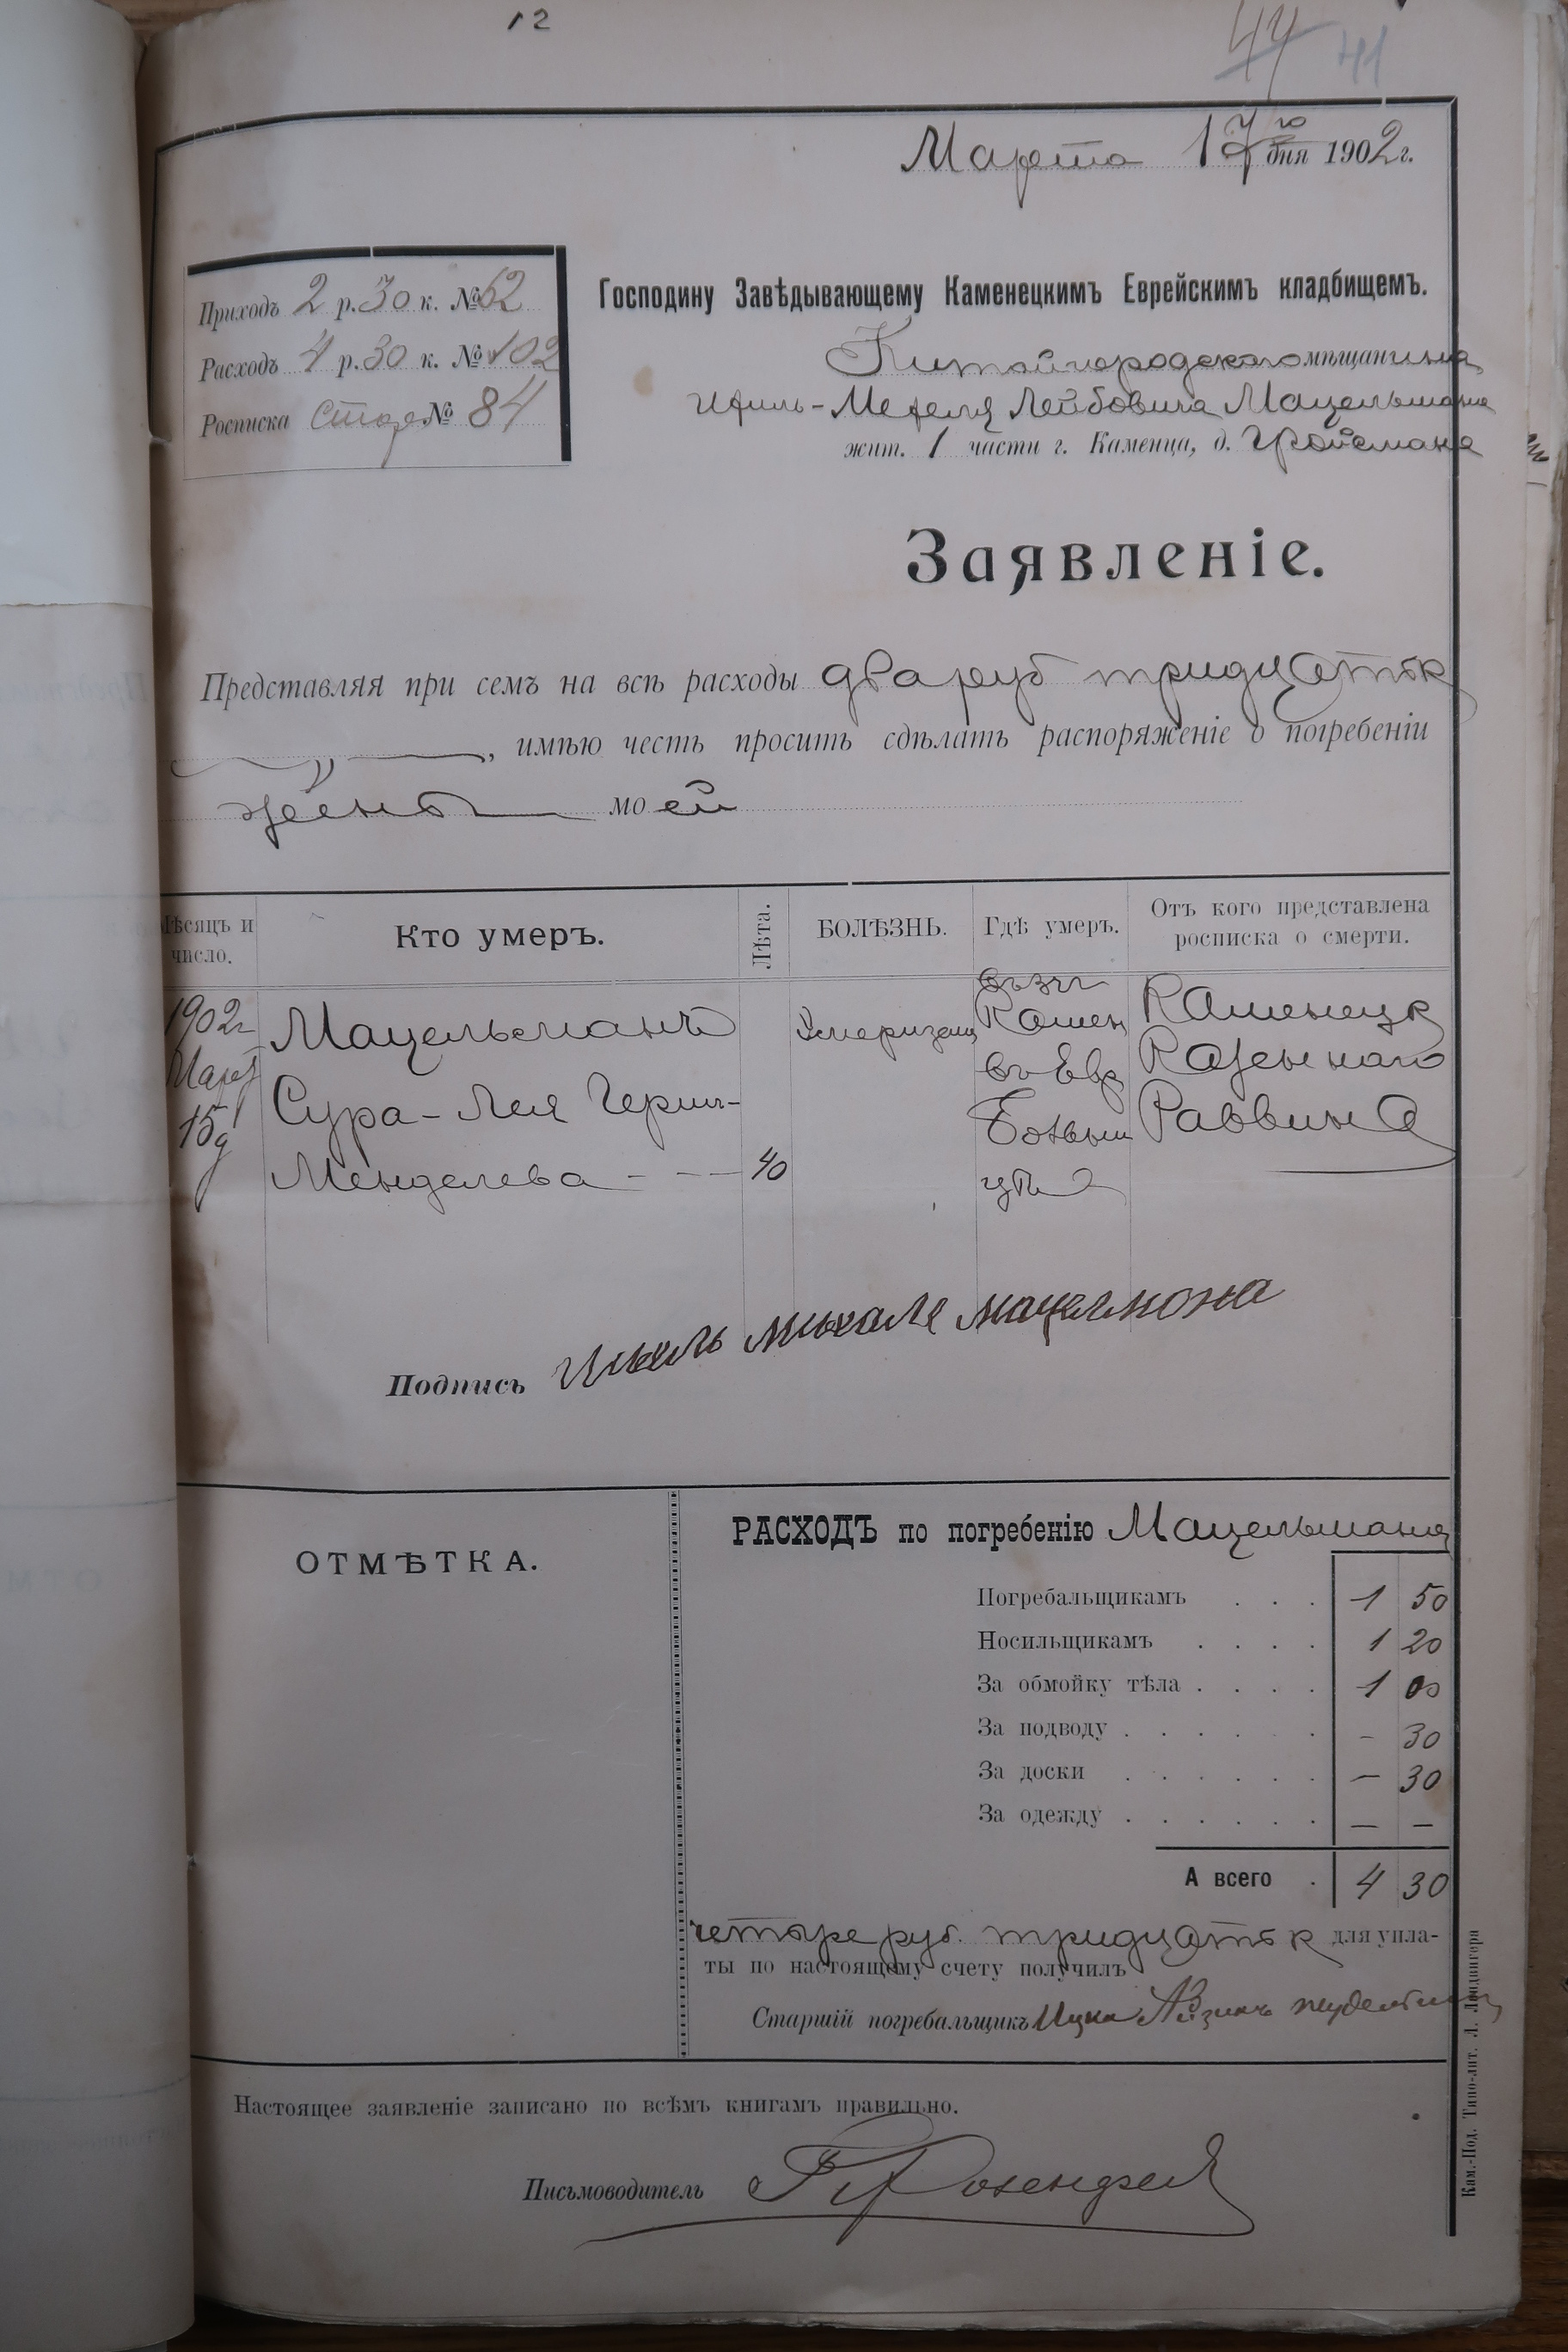 12
44 41
Марта 17го дня 1902 г.
Приходъ 2 р. 30 к. № 62
Расходъ 4 р. 30 к. № 102
Росписка стар № 84
Господину Завѣдывающему Каменецкимъ Еврейскимъ кладбищемъ.
Китайгородского мѣщанина
Лейбовича Мацельмана
жит. 1 части г. Каменца, д. Гройсмана
Заявленіе.
Представляя при семъ на всѣ расходы два руб тридцать к
, имѣю честь просить сдѣлать распоряженіе о погребеніи
жены моей
Мѣсяцъ и число. Кто умеръ. Лѣта. БОЛѢЗНЬ. Гдѣ умеръ. Отъ кого представлена росписка о смерти.
1902 г Мацельманъ въ г. Камен Каменецк
Март Сура-Лея Герш- въ Евр Казеннаго
15 д Менделева 40 Больни цѣ Раввина
Подпись
ОТМѢТКА.
РАСХОДЪ по погребенію Мацельмана
Погребальщикамъ . . . 1 50
Носильщикамъ . . . . 1 20
За обмойку тѣла . . . . 1 00
За подводу . . . . . . - 30
За доски . . . . . . — 30
За одежду . . . . . . — —
А всего . 4 30
четыре руб. тридцать к для упла-
ты по настоящему счету получилъ
Старшій погребальщикъ Ицко Айзикъ
Настоящее заявленіе записано по всѣмъ книгамъ правильно.
Письмоводитель
Кам.-Под. Типо-лит. Л. Ландвигера